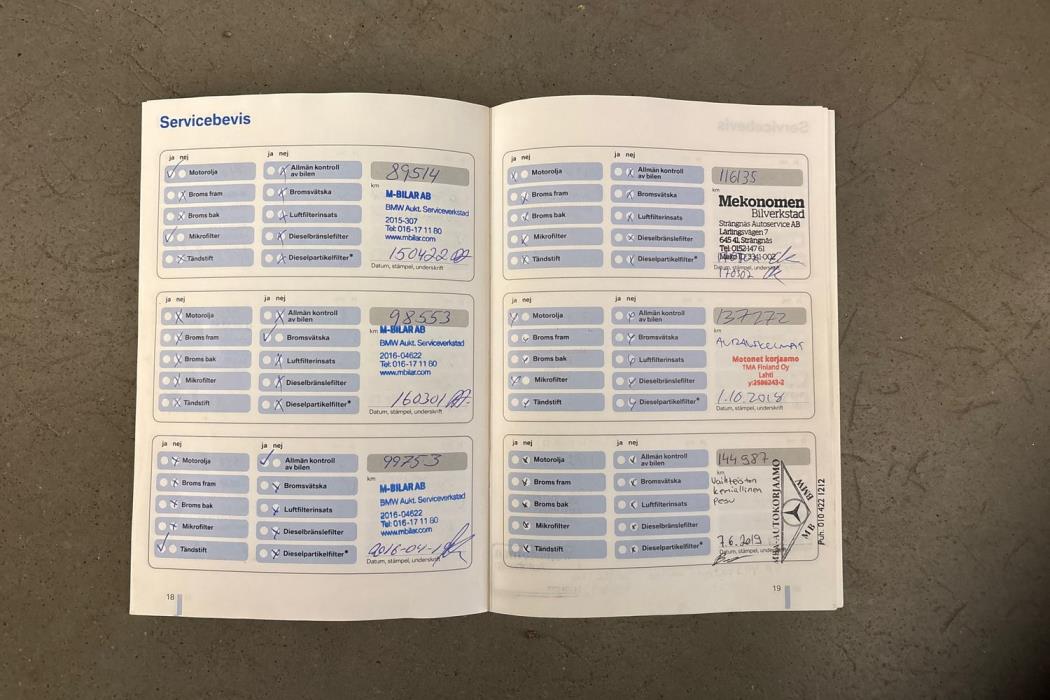 Servicebevis
ja nej
nej
Motorolja
Allmän kontroll
av bilen
89514
Broms fram
Bromsvätska
km
Broms bak
Luftfilterinsats
Mikrofilter
Dieselbränslefilter
Tändstift
Dieselpartikelfilter*
M-BILAR AB
BMW Aukt. Serviceverkstad
2015-307
Tel: 016-17 11 80
www.mbilar.com
150422
Datum, stämpel, underskrift
ja nej
ja nej
Motorolja
Allmän kontroll
av bilen
98553
Broms fram
Bromsvätska
km
Broms bak
Luftfilterinsats
Mikrofilter
Dieselbränslefilter
Tändstift
Dieselpartikelfilter*
M-BILAR AB
BMW Aukt. Serviceverkstad
2016-04622
Tel: 016-17 11 80
www.mbilar.com
160301
Datum, stämpel, underskrift
ja nej
ja nej
Motorolja
Allmän kontroll
av bilen
99753
Broms fram
Bromsvätska
km
Broms bak
Luftfilterinsats
Mikrofilter
Dieselbränslefilter
Tändstift
Dieselpartikelfilter*
M-BILAR AB
BMW Aukt. Serviceverkstad
2016-04622
Tel: 016-17 11 80
www.mbilar.com
Datum, stämpel, underskrift
18
ja nej
ja nej
Motorolja
Allmän kontroll
av bilen
116135
Broms fram
Bromsvätska
km
Broms bak
Luftfilterinsats
Mikrofilter
Dieselbränslefilter
Tändstift
Dieselpartikelfilter*
Mekonomen
Bilverkstad
Strängnäs Autoservice AB
Lärlingsvägen 7
645 41 Strängnäs
Tel 0152-147 61
Datum, stämpel, underskrift
170302
ja nej
ja nej
Motorolja
Allmän kontroll
av bilen
137272
Broms fram
Bromsvätska
km
Broms bak
Luftfilterinsats
Mikrofilter
Dieselbränslefilter
Tändstift
Dieselpartikelfilter*
Motonet korjaamo
TMA Finland Oy
Lahti
y:2586243-2
1.10.2018
Datum, stämpel, underskrift
ja nej
ja nej
Motorolja
Allmän kontroll
av bilen
144987
Broms fram
Bromsvätska
km
Broms bak
Luftfilterinsats
Mikrofilter
Dieselbränslefilter
Tändstift
Dieselpartikelfilter*
Vaihteiston
kemiallinen
pesu
7.6.2019
Datum, stämpel, underskrift
MBA-AUTOKORJAAMO
MB
BMW
Puh. 010 422 1212
19